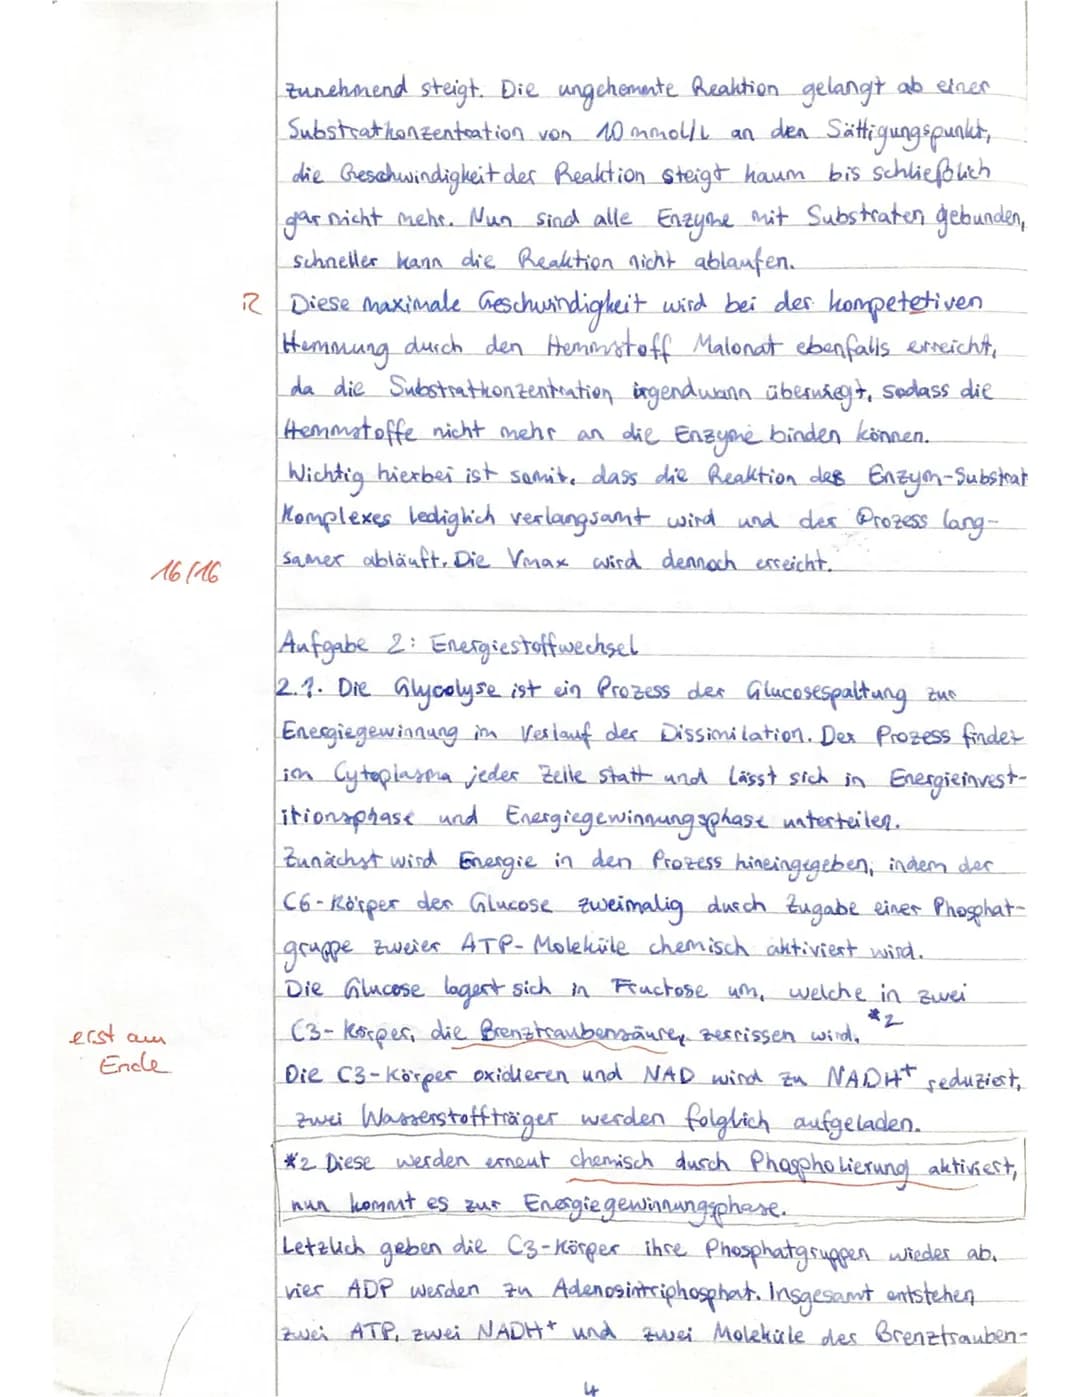 zunehmend steigt. Die ungehemmte Reaktion gelangt ab einer
Substratkonzentration von 10 mmol/L an den Sättigungspunkt,
die Geschwindigkeit der Reaktion steigt kaum bis schließlich
gar nicht mehr. Nun sind alle Enzyme mit Substraten gebunden,
schneller kann die Reaktion nicht ablaufen.
R Diese maximale Geschwindigkeit wird bei der kompetetiven
Hemmung durch den Hemmstoff Malonat ebenfalls erreicht,
da die Substratkonzentration irgendwann überwiegt, sodass die
Hemmstoffe nicht mehr an die Enzyme binden können.
Wichtig hierbei ist somit, dass die Reaktion des Enzym-Substrat
Komplexes lediglich verlangsamt wird und der Prozess lang-
samer abläuft. Die Vmax wird dennoch erreicht.
16/16
Aufgabe 2: Energiestoffwechsel
2.1. Die Glycolyse ist ein Prozess der Glucosespaltung zur
Energiegewinnung im Verlauf der Dissimilation. Der Prozess findet
im Cytoplasma jeder Zelle statt und lässt sich in Energieinvest-
itionsphase und Energiegewinnungsphase unterteilen.
Zunächst wird Energie in den Prozess hineingegeben, indem der
C6-Körper der Glucose zweimalig durch Zugabe einer Phosphat-
gruppe zweier ATP-Moleküle chemisch aktiviert wird.
Die Glucose lagert sich in Fructose um, welche in zwei
C3-Körper, die Brenztraubensäure, zerrissen wird. *2
erst am
Ende
Die C3-Körper oxidieren und NAD wird zu NADH+ reduziert,
zwei Wasserstoffträger werden folglich aufgeladen.
*2 Diese werden erneut chemisch durch Phospholierung aktiviert,
nun kommt es zur Energiegewinnungsphase.
Letzlich geben die C3-Körper ihre Phosphatgruppen wieder ab.
vier ADP werden zu Adenosintriphosphat. Insgesamt entstehen
zwei ATP, zwei NADH+ und zwei Moleküle des Brenztrauben-
4